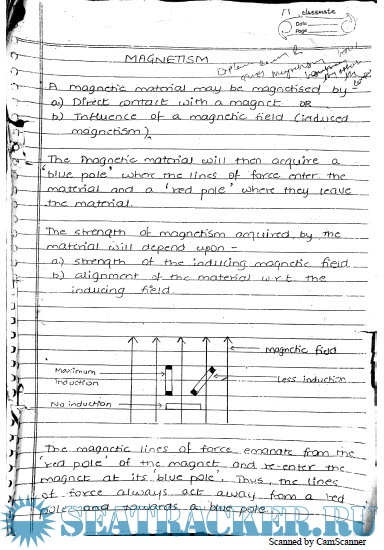 classmate
Date
Page
MAGNETISM
A magnetic material may be magnetised by -
a) Direct contact with a magnet OR
b) Influence of a magnetic field (induced
magnetism).
The magnetic material will then acquire a
'blue pole' where the lines of force enter the
material and a 'red pole' where they leave
the material.
The strength of magnetism acquired by the
material will depend upon -
a) strength of the inducing magnetic field
b) alignment of the material w.r.t. the
inducing field.
magnetic field
Maximum
induction
Less induction
No induction
The magnetic lines of force emanate from the
'red pole' of the magnet and re-enter the
magnet at its 'blue pole'. Thus, the lines
of force always act away from a red
pole and towards a blue pole.
SEATRACKER.RU
Scanned by CamScanner